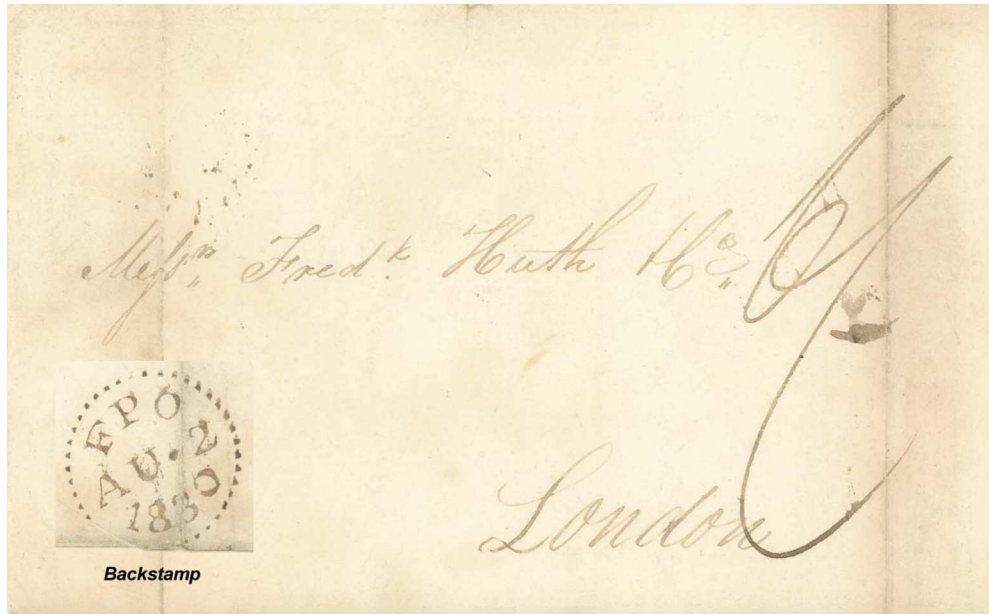 Messrs Fredk. Huth & Co
London
FPO
AU. 2
1830
Backstamp